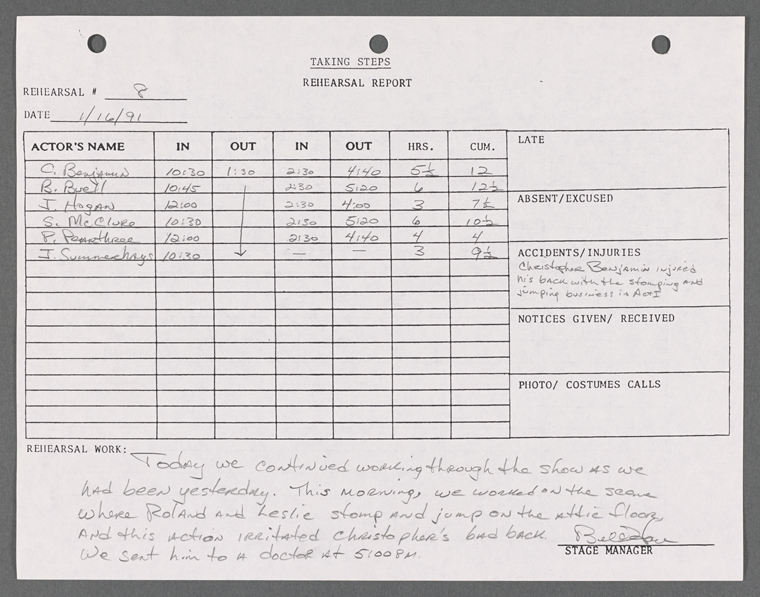 TAKING STEPS
REHEARSAL REPORT
REHEARSAL # 8
DATE 1/16/91
ACTOR'S NAME IN OUT IN OUT HRS. CUM.
C. Benjamin 10:30 1:30 2:30 4:40 5½ 12
B. Buell 10:45 2:30 5:20 6 12½
J. Hogan 12:00 2:30 4:00 3 7½
S. McClure 10:30 2:30 5:20 6 10½
P. Pearthree 12:00 2:30 4:40 4 4
J. Summerhays 10:30 — — 3 9½
LATE
ABSENT/EXCUSED
ACCIDENTS/INJURIES
Christopher Benjamin injured
his back with the stomping and
jumping business in Act I
NOTICES GIVEN/ RECEIVED
PHOTO/ COSTUMES CALLS
REHEARSAL WORK:
Today we continued working through the show as we
had been yesterday. This morning, we worked on the scene
where Roland and Leslie stomp and jump on the attic floor,
and this action irritated Christopher's bad back.
We sent him to a doctor at 5:00PM.
STAGE MANAGER